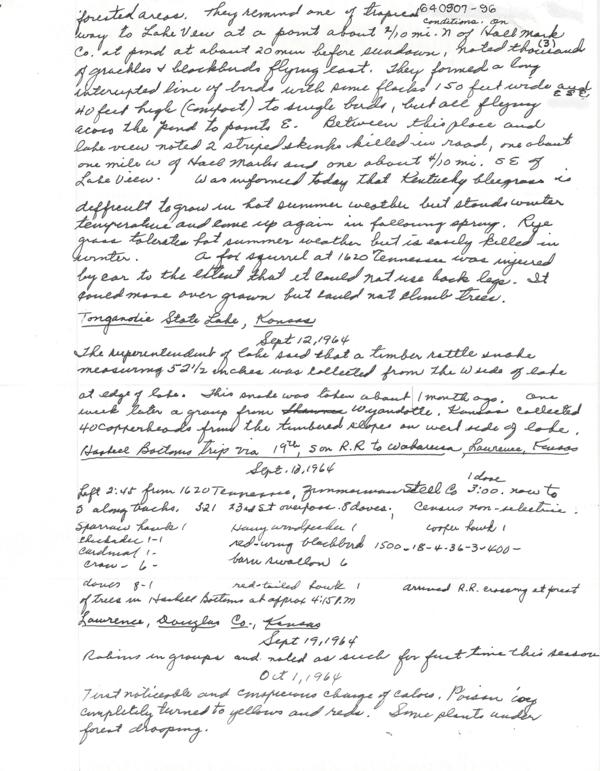 forested areas. They remind one of tropical
640907-96
conditions. On
way to Lake View at a point about 2/10 mi. N of Hall Mark
Co. at pond at about 20 min before sundown, noted thousands
(3)
of grackles & blackbirds flying east. They formed a long
interrupted line of birds with some flocks 150 feet wide and
ESE
40 feet high (compact) to single birds, but all flying
across the pond to points E. Between this place and
lake view noted 2 striped skunks killed in road, one about
one mile W of Hall Marks and one about 4/10 mi. SE of
Lake View. Was informed today that Kentucky bluegrass is
difficult to grow in hot summer weather but stands winter
temperature and come up again in following spring. Rye
grass tolerates hot summer weather but is easily killed in
winter. A fox squirrel at 1620 Tennessee was injured
by car to the extent that it could not use back legs. It
could move over grown but could not climb trees.
Tonganoxie State Lake, Kansas
Sept 12, 1964
The superintendent of lake said that a timber rattle snake
measuring 52 1/2 inches was collected from the W side of lake
at edge of lake. This snake was taken about 1 month ago. One
week later a group from Wyandotte, Kansas collected
40 copperheads from the timbered slopes on west side of lake.
Haskell Bottoms trip via 19th, son R.R. to Wakarusa, Lawrence, Kansas
Sept. 13, 1964
1 dove
Left 2:45 from 1620 Tennessee, Zimmerman Steel Co 3:00. now to
S along tracks. 321 23rd St overpass. 5 doves. Census non-selective.
Sparrow hawk 1 Hairy woodpecker 1 cooper hawk 1
chickadee 1-1 red-wing blackbird 1500-18-4-36-3-400-
cardinal 1- barn swallow 6
crow - 6 -
doves 8-1 red-tailed hawk 1 arrived R.R. crossing at forest
of trees in Haskell Bottoms at approx 4:15 P.M
Lawrence, Douglas Co., Kansas
Sept 19, 1964
Robins in groups and noted as such for first time this season
Oct 1, 1964
First noticeable and conspicuous change of colors. Poison ivy
completely turned to yellows and reds. Some plants under
forest drooping.